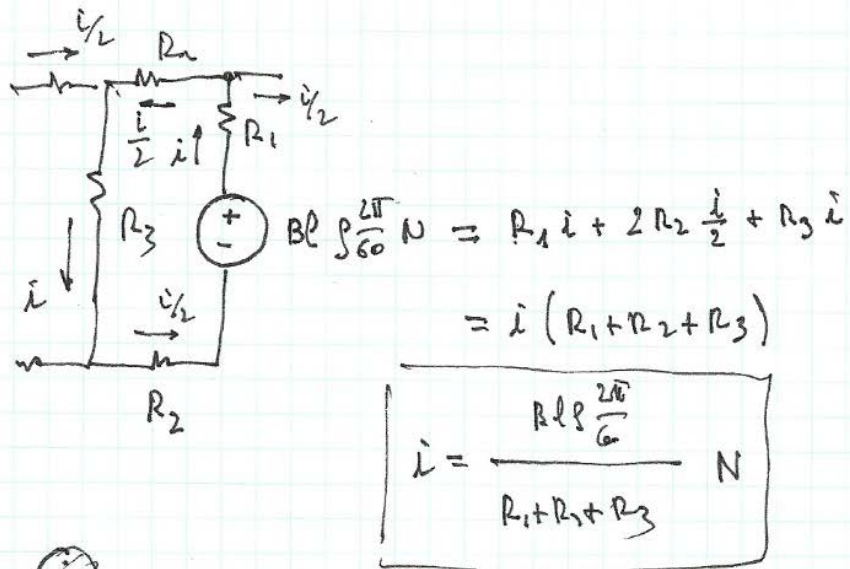 i/2
R2
i/2
i/2
i
R1
R3
+
-
Bl ρ 2π/60 N = R1 i + 2 R2 i/2 + R3 i
i
i/2
= i (R1 + R2 + R3)
R2
i = Blρ 2π/60 / R1 + R2 + R3 N